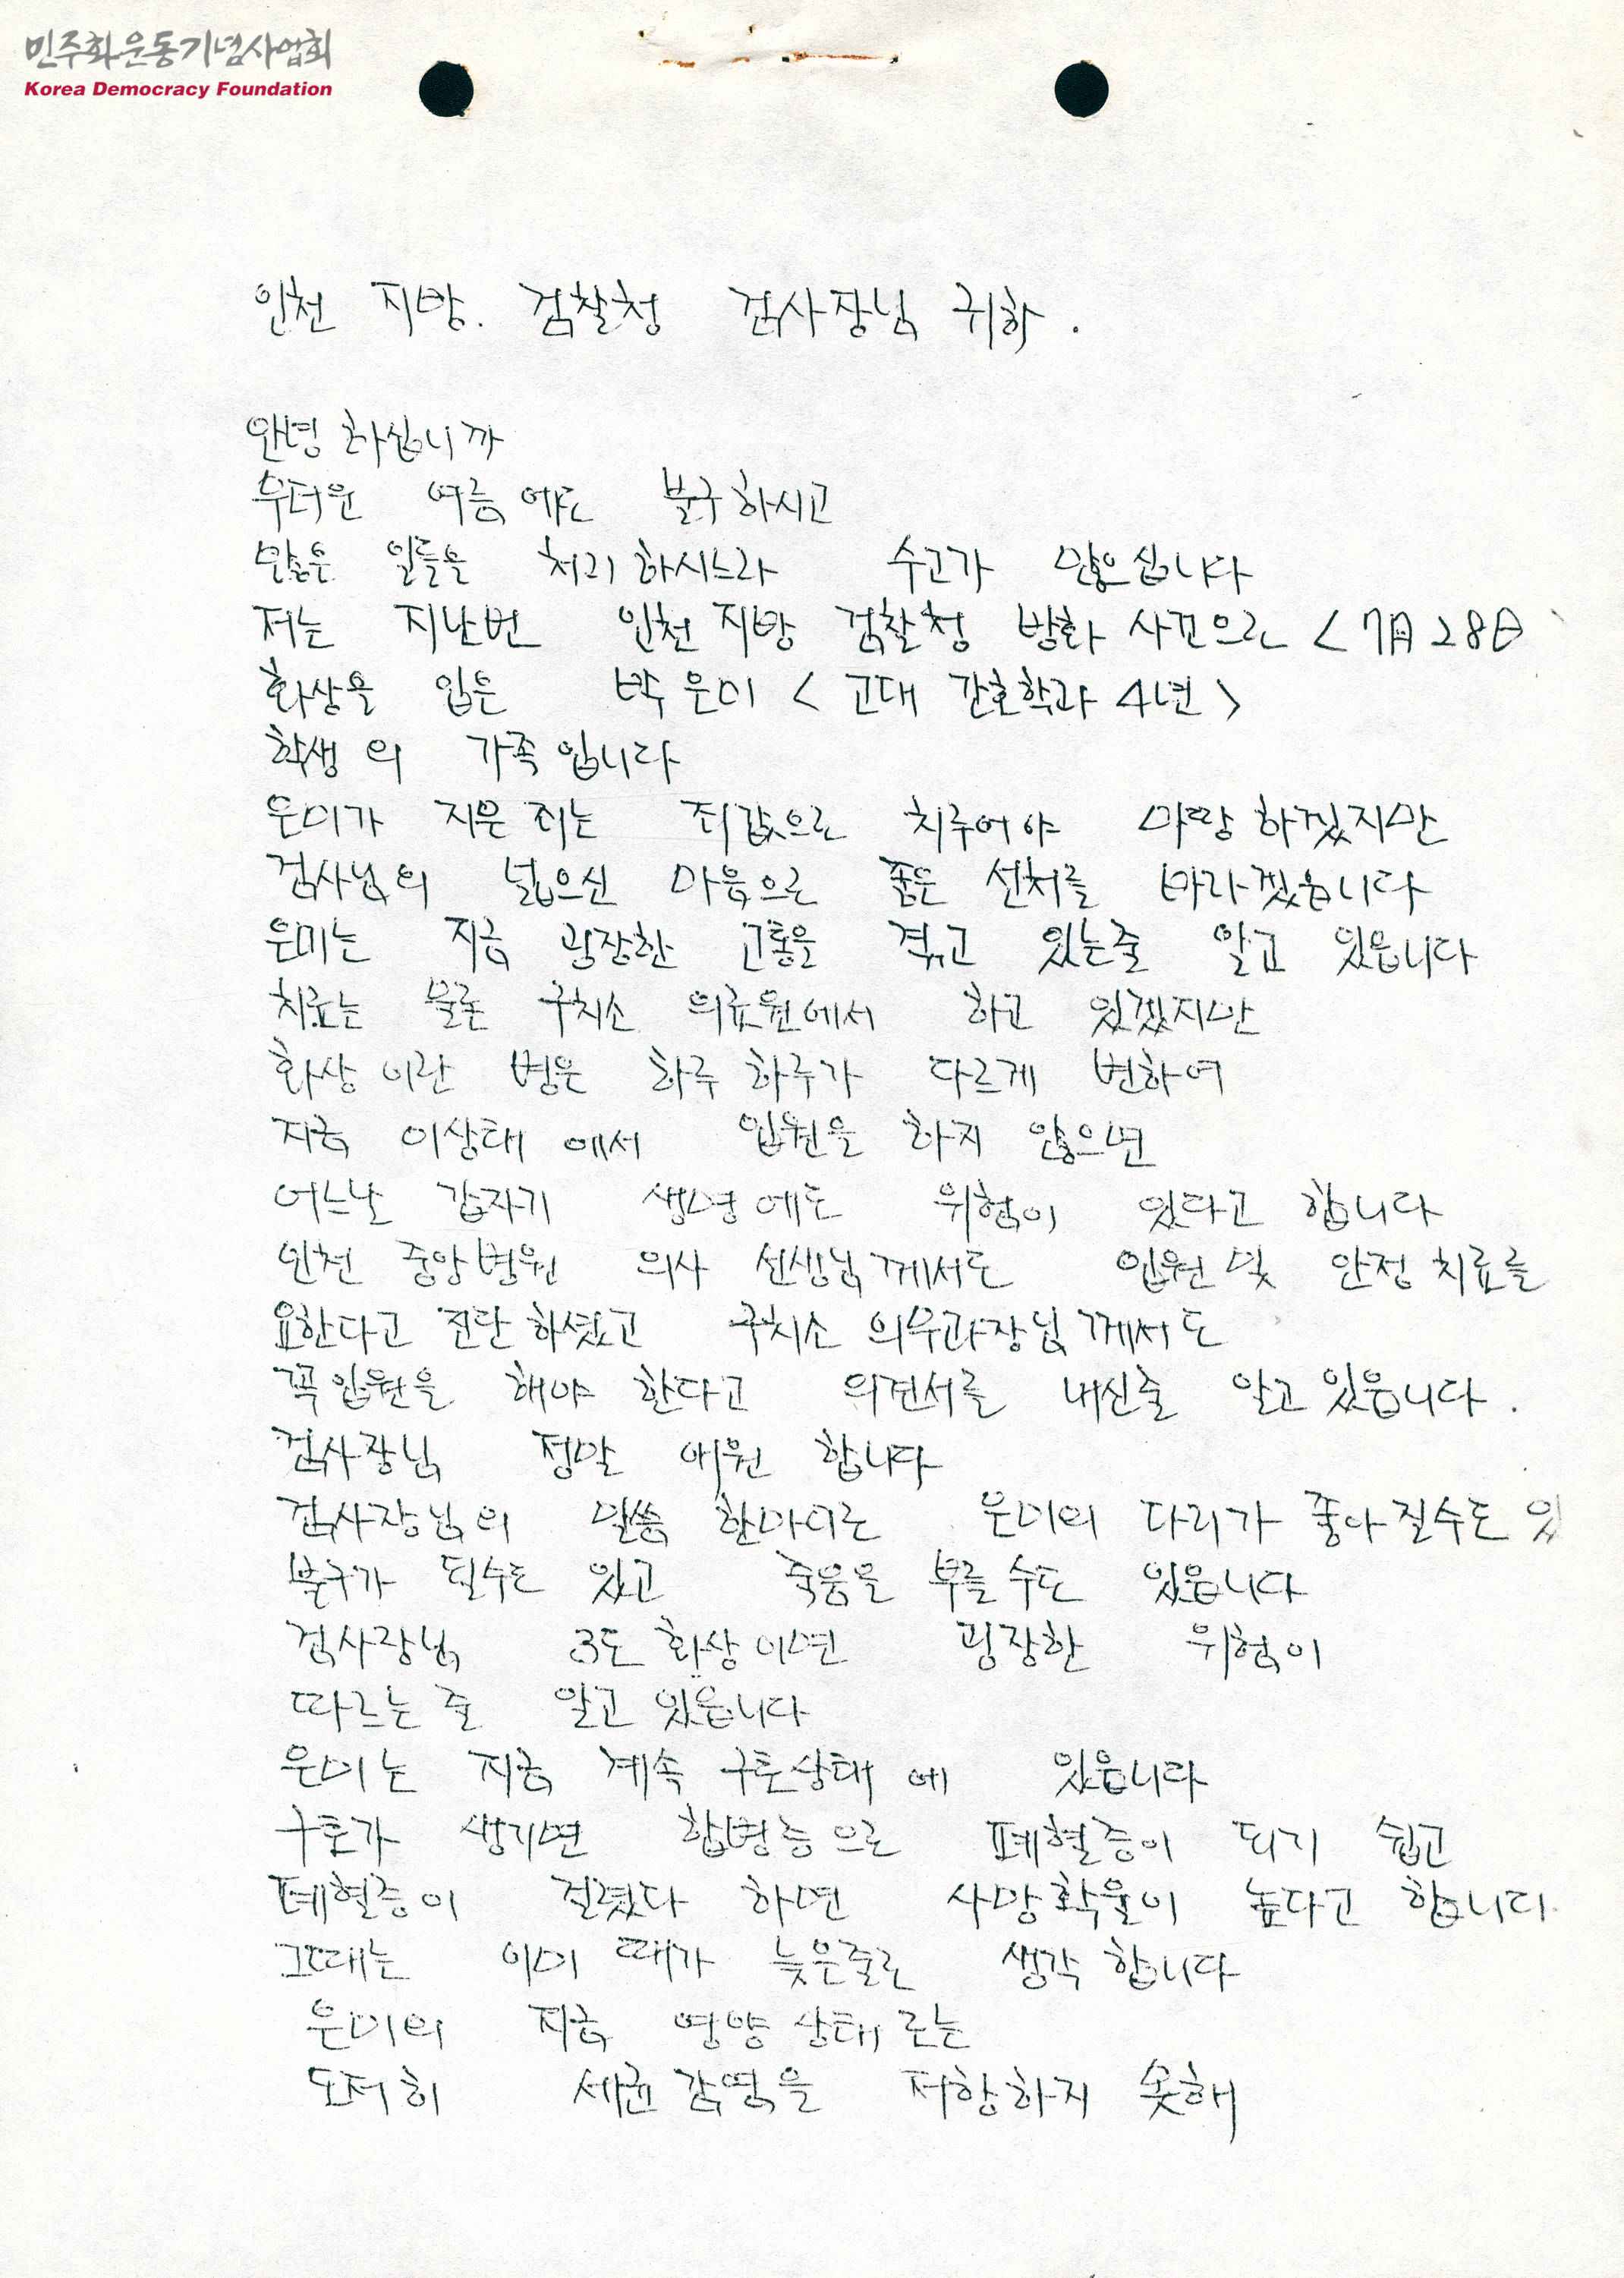 민주화운동기념사업회
Korea Democracy Foundation
인천 지방. 검찰청 검사장님 귀하.
안녕 하십니까
무더운 여름에도 불구하시고
많은 일들을 처리하시느라 수고가 많으십니다
저는 지난번 인천지방 검찰청 방화 사건으로 < 7月 28日
화상을 입은 박은미 < 고대 간호학과 4년 >
학생의 가족입니다
은미가 지은 죄는 죄값으로 치루어야 마땅하겠지만
검사님의 넓으신 마음으로 좋은 선처를 바라겠읍니다
은미는 지금 굉장한 고통을 겪고 있는줄 알고 있읍니다
치료는 물론 구치소 의료원에서 하고 있겠지만
화상이란 병은 하루하루가 다르게 변하여
지금 이상태에서 입원을 하지 않으면
어느날 갑자기 생명에도 위험이 있다고 합니다
인천 중앙병원 의사 선생님께서도 입원 및 안정치료를
요한다고 진단하셨고 구치소 의무과장님께서도
꼭입원을 해야 한다고 의견서를 내신줄 알고있읍니다.
검사장님 정말 애원 합니다
검사장님의 말씀 한마디로 은미의 다리가 좋아질수도 있
불구가 될수도 있고 죽음을 부를수도 있읍니다
검사장님 3도화상이면 굉장한 위험이
따르는 줄 알고 있읍니다
은미는 지금 계속 구토상태에 있읍니다
구토가 생기면 합병증으로 페혈증이 되기 쉽고
페혈증이 걸렸다 하면 사망확율이 높다고 합니다
그때는 이미 때가 늦은줄로 생각합니다
은미의 지금 영양상태로는
도저히 세균감염을 저항하지 못해